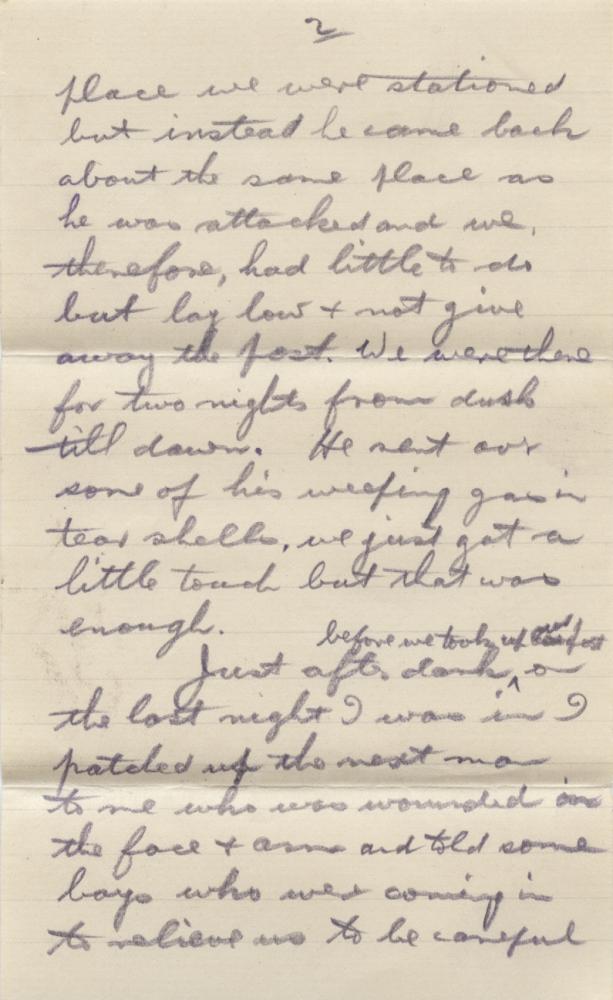 2
place we were stationed
but instead he came back
about the same place as
he was attacked and we,
therefore, had little to do
but lay low + not give
away the post. We were there
for two nights from dusk
till dawn. He sent ovr
some of his weeping gas in
tear shells, we just got a
little touch but that was
enough.
before we took up our post
Just after dark, ^ on
the last night I was in I
patched up the next man
to me who was wounded in
the face + arm and told some
boys who were coming in
to relieve us to be careful